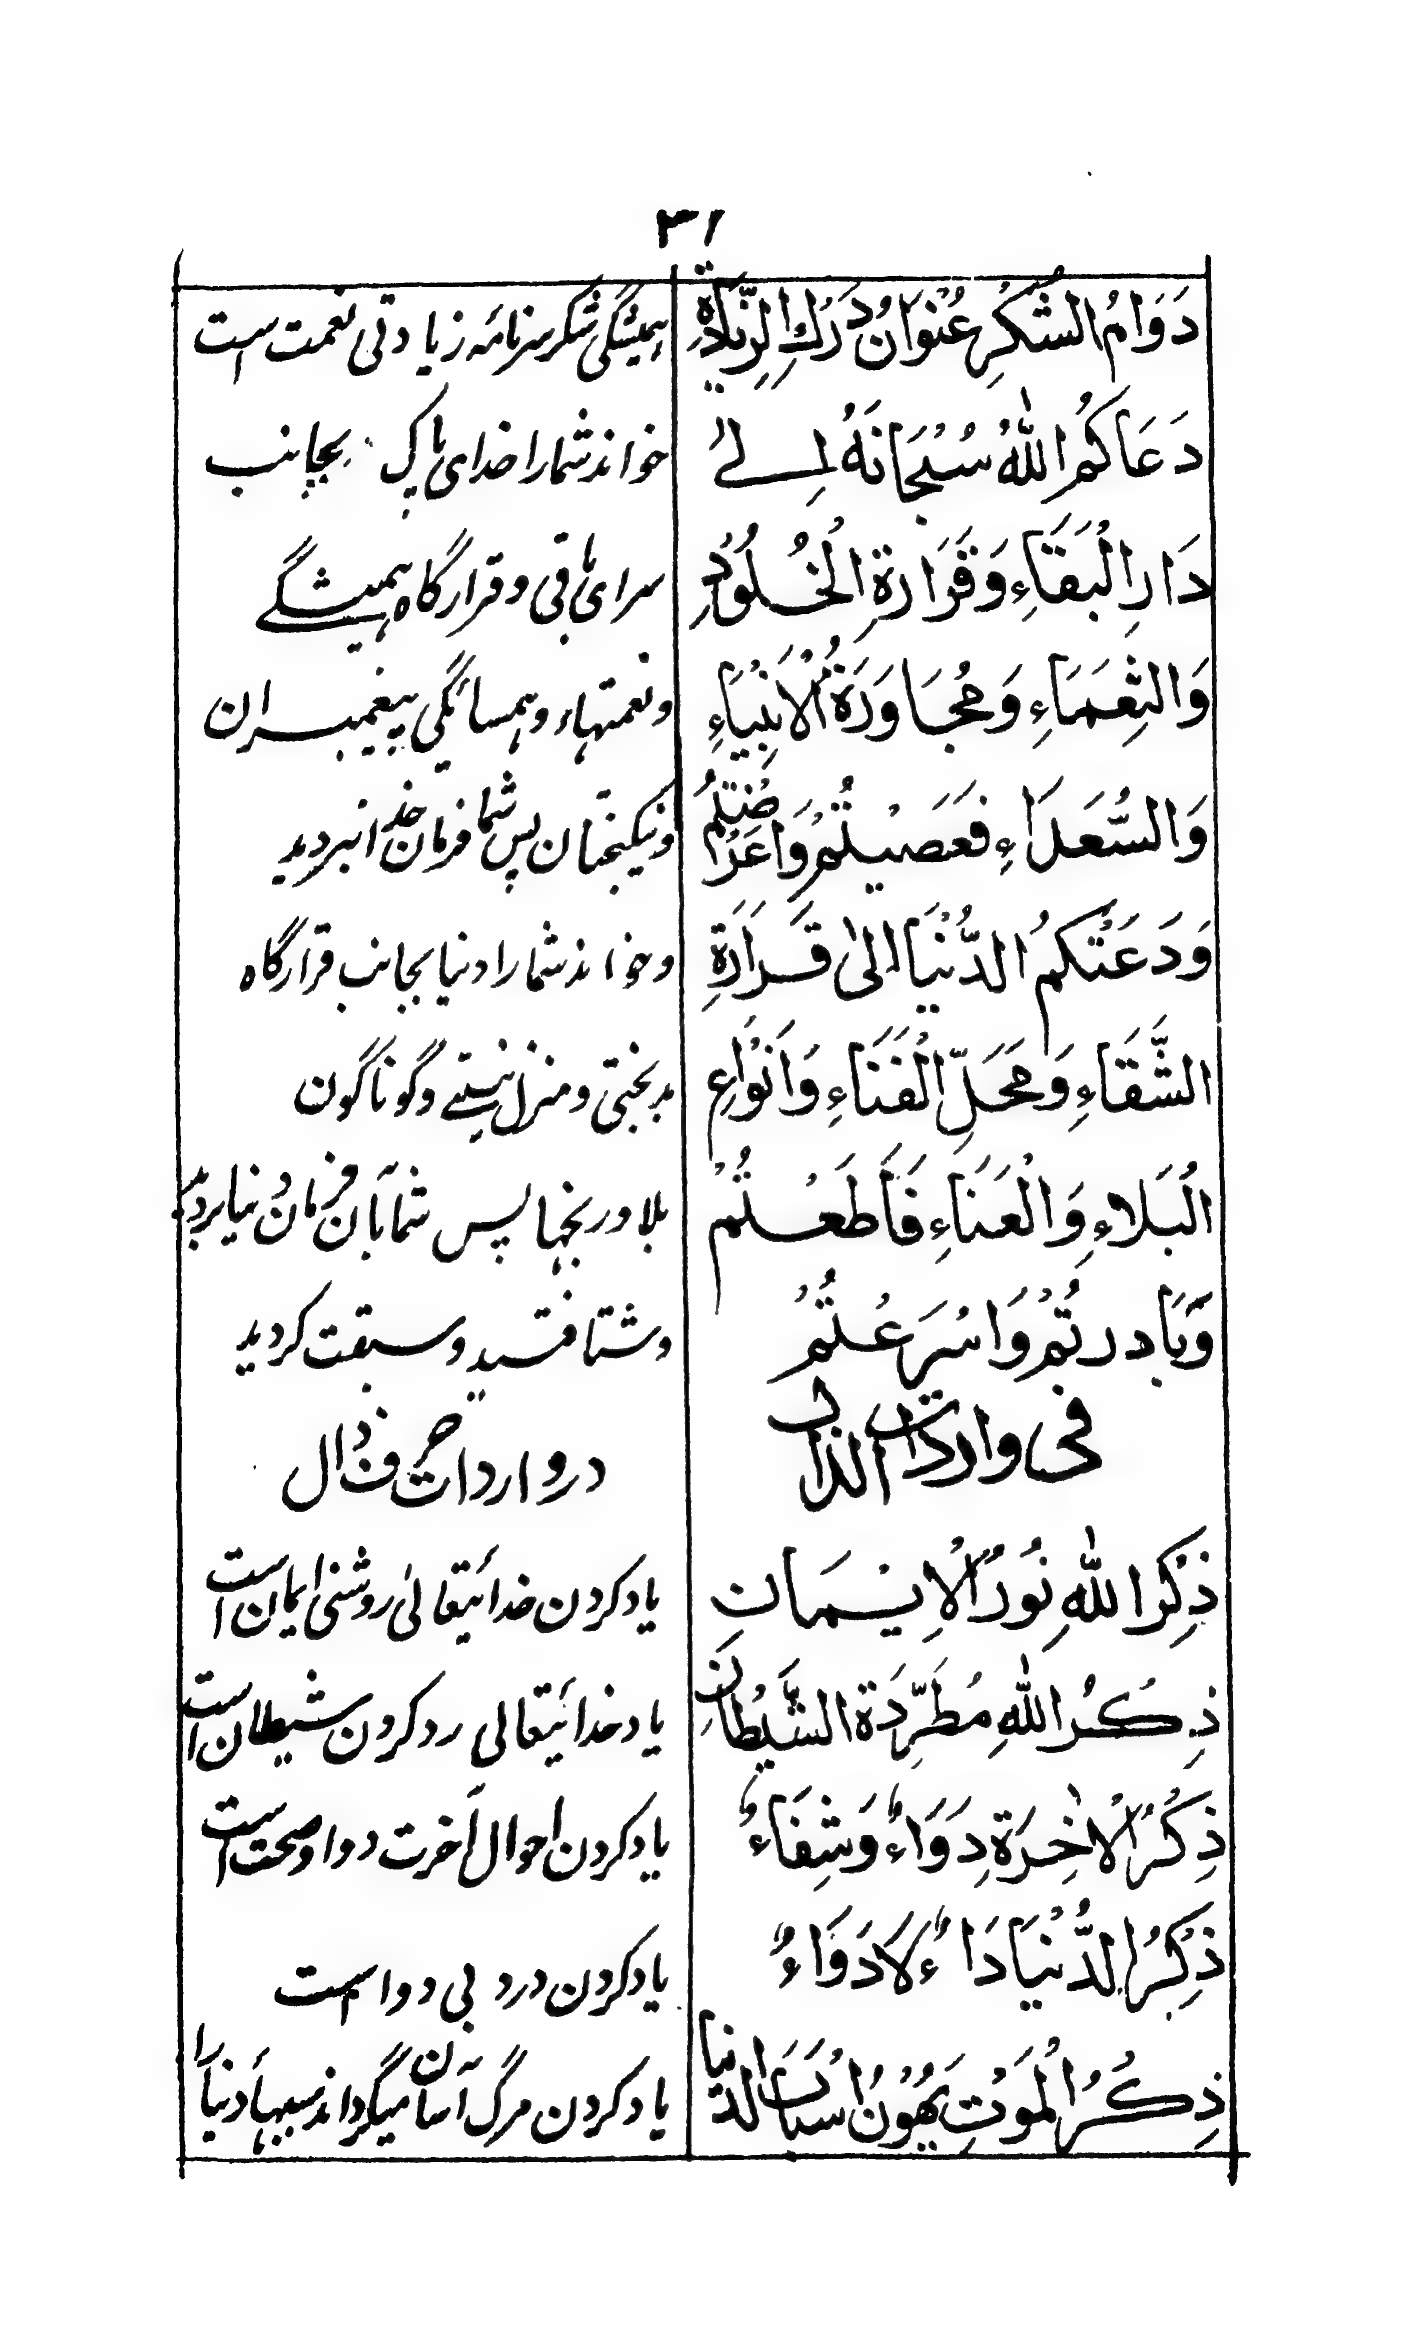 ٣١
دَوَامُ الشُّكْرِ عُنْوَانُ دَرَكِ الزِّيَادَةِ
همیشگی شکر سرنامه زیادتی نعمت است
دَعَاكُمُ اللّٰهُ سُبْحَانَهُ اِلٰى
خواند شما را خدای پاک بجانب
دَارِ الْبَقَاءِ وَقَرَارَةِ الْخُلُوْدِ
سرای باقی و قرارگاه همیشگی
وَالنَّعْمَاءِ وَمُجَاوَرَةِ الْاَنْبِيَاءِ
و نعمتهاء و همسائگی پیغمبران
وَالسُّعَدَاءِ فَعَصَيْتُمْ وَاَعْرَضْتُمْ
و نیکبختان پس شما فرمان خدا نبردید
وَدَعَتْكُمُ الدُّنْيَا اِلٰى قَرَارَةِ
و خواند شما را دنیا بجانب قرارگاه
الشَّقَاءِ وَمَحَلِّ الْفَنَاءِ وَاَنْوَاعِ
بدبختی و منزل نیستی و گوناگون
الْبَلَاءِ وَالْعَنَاءِ فَاَطَعْتُمْ
بلا و رنجها پس شما بآن فرمان دنیا بردید
وَبَادَرْتُمْ وَاَسْرَعْتُمْ
و شتافتید و سبقت کردید
فی واردات الذال
در واردات حرف ذال
ذِكْرُ اللّٰهِ نُوْرُ الْاِيْمَانِ
یاد کردن خدائیتعالی روشنی ایمان است
ذِكْرُ اللّٰهِ مَطْرَدَةُ الشَّيْطَانِ
یاد خدائیتعالی رد کردن شیطان است
ذِكْرُ الْاٰخِرَةِ دَوَاءٌ وَشِفَاءٌ
یاد کردن احوال آخرت دوا و صحت است
ذِكْرُ الدُّنْيَا دَاءٌ لَا دَوَاءٌ
یاد کردن درد بی دوا است
ذِكْرُ الْمَوْتِ يُهَوِّنُ اَسْبَابَ الدُّنْيَا
یاد کردن مرگ آسان میگرداند سببهاء دنیا را